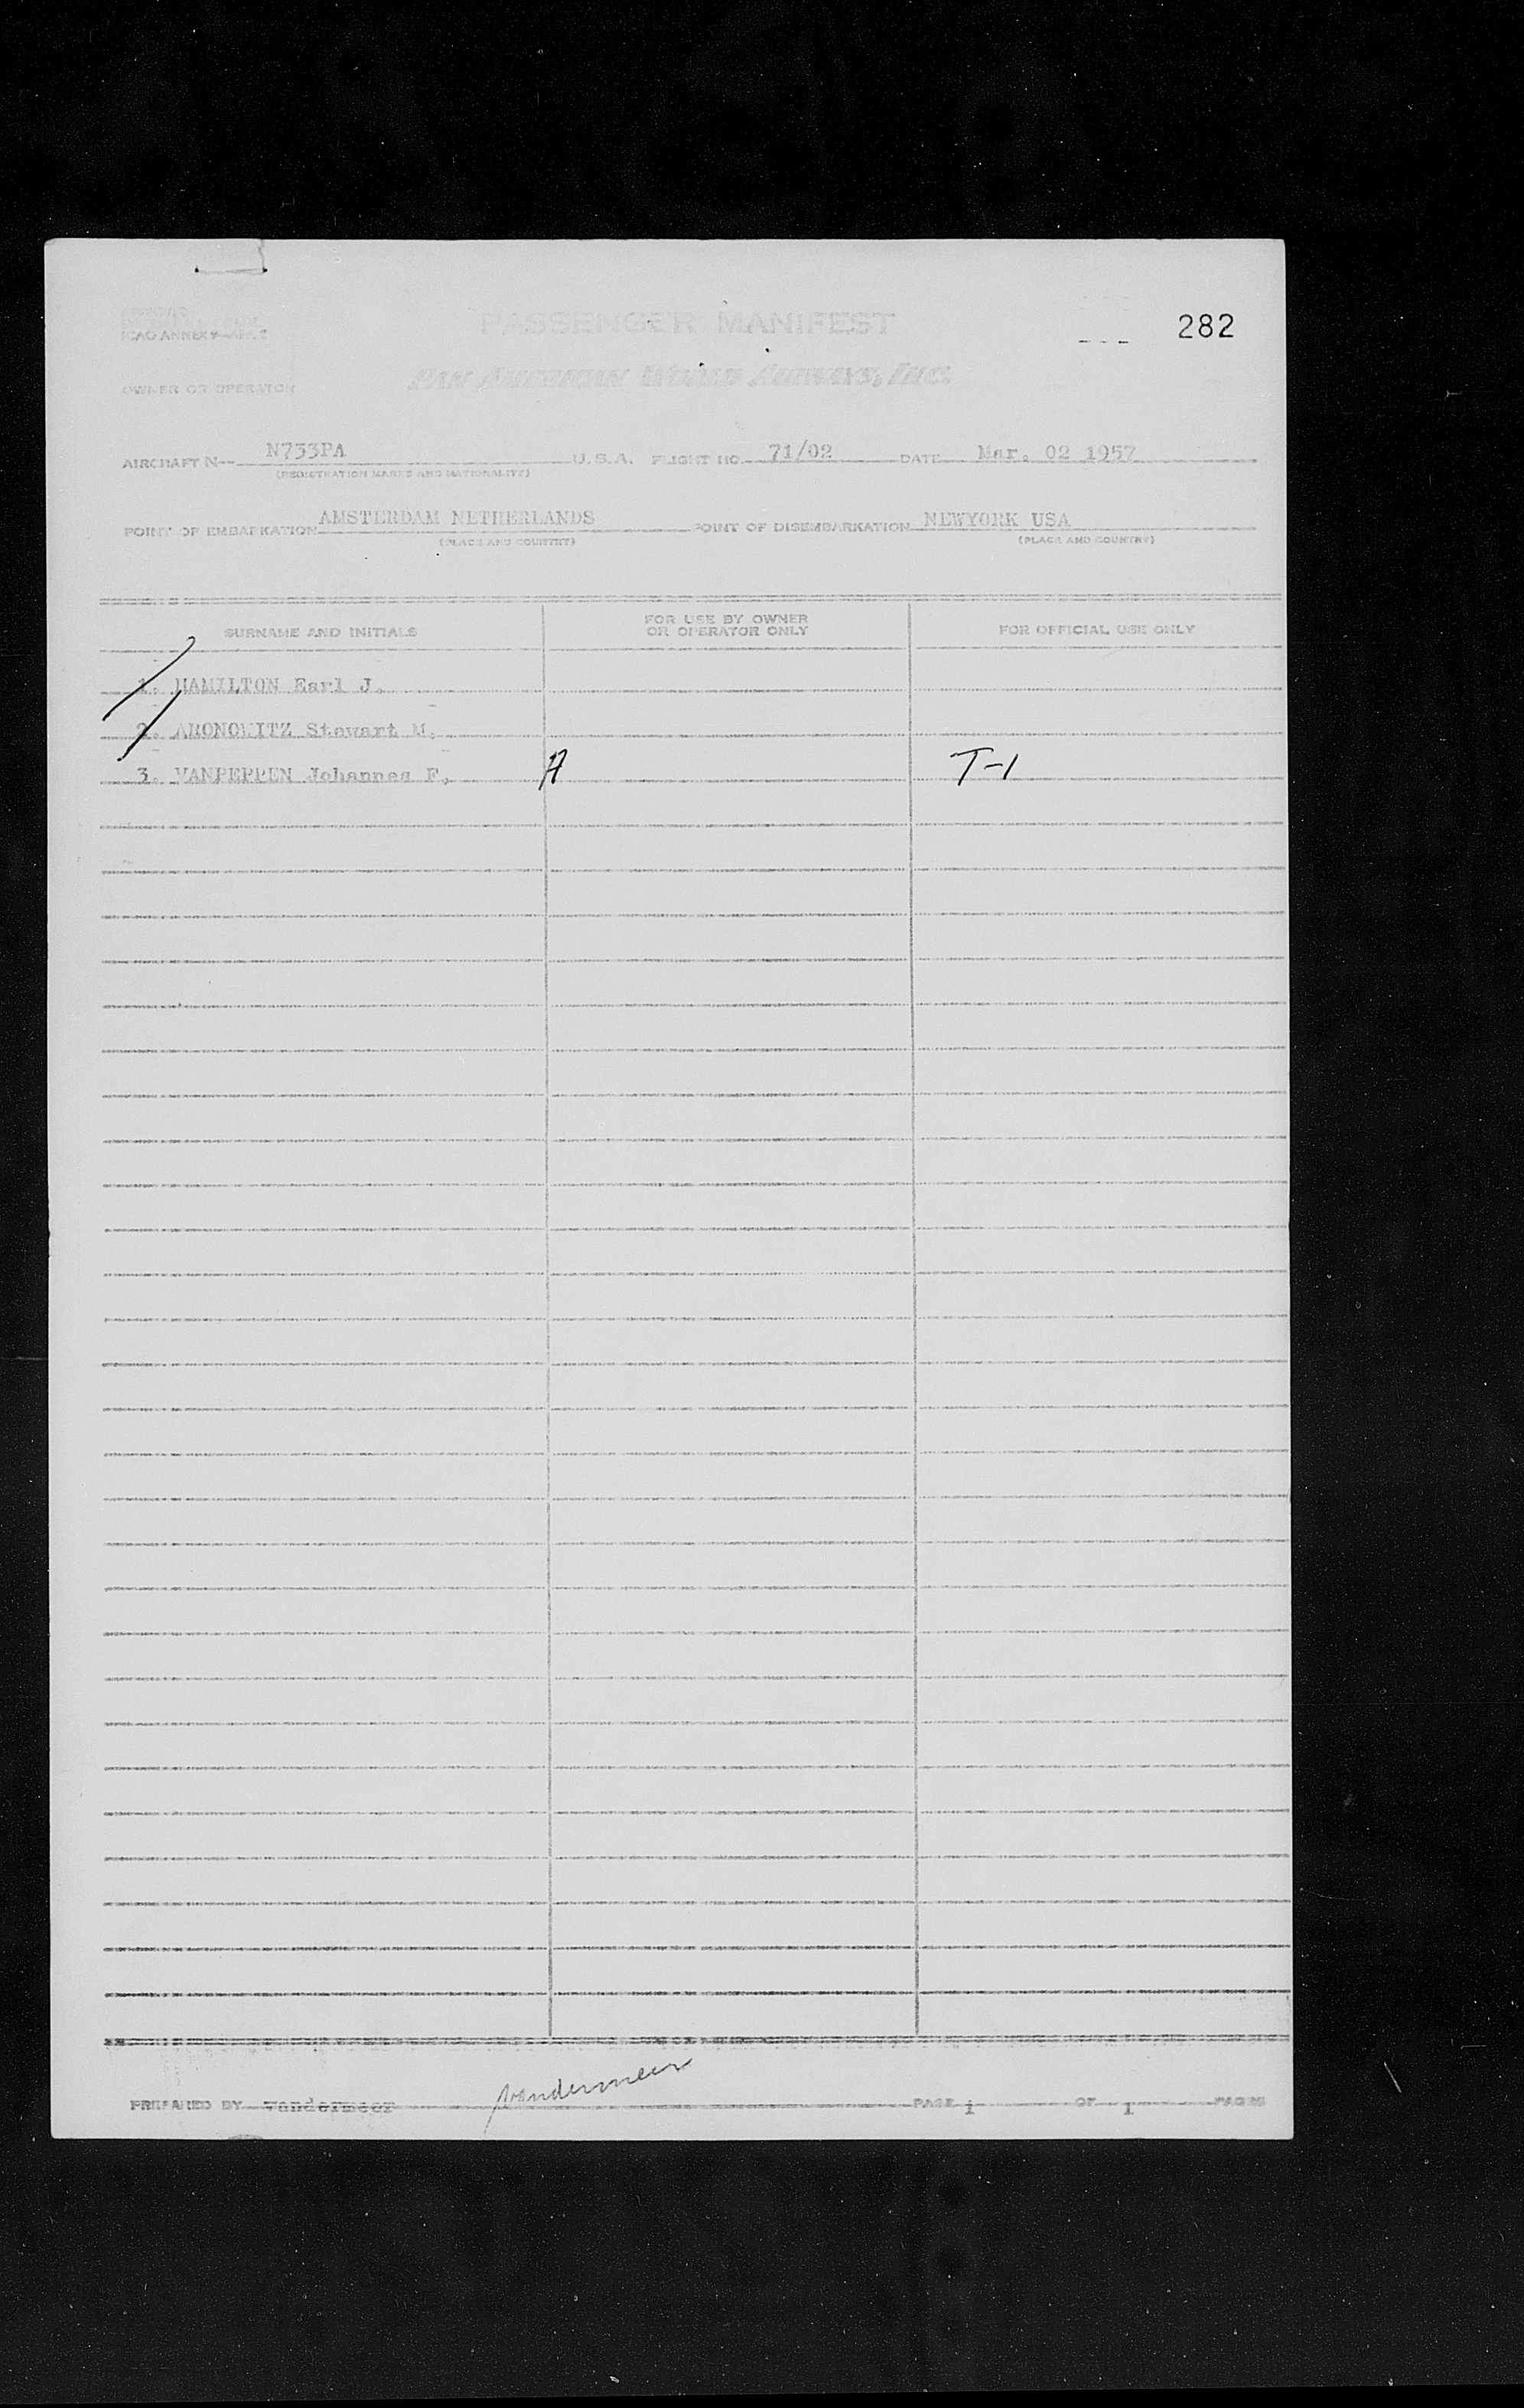 PASSENGER MANIFEST
282
ICAO ANNEX 9
OWNER OR OPERATOR PAN AMERICAN WORLD AIRWAYS, INC.
AIRCRAFT N— N733PA U.S.A. FLIGHT NO. 71/02 DATE Mar. 02 1957
(REGISTRATION MARKS AND NATIONALITY)
POINT OF EMBARKATION AMSTERDAM NETHERLANDS POINT OF DISEMBARKATION NEWYORK USA
(PLACE AND COUNTRY) (PLACE AND COUNTRY)
SURNAME AND INITIALS FOR USE BY OWNER OR OPERATOR ONLY FOR OFFICIAL USE ONLY
1. HAMILTON Earl J.
2. ARONOWITZ Stewart M.
3. VANPEPPEN Johannes F. A T-1
PREPARED BY vandermeer vandermeer PAGE 1 OF 1 PAGES